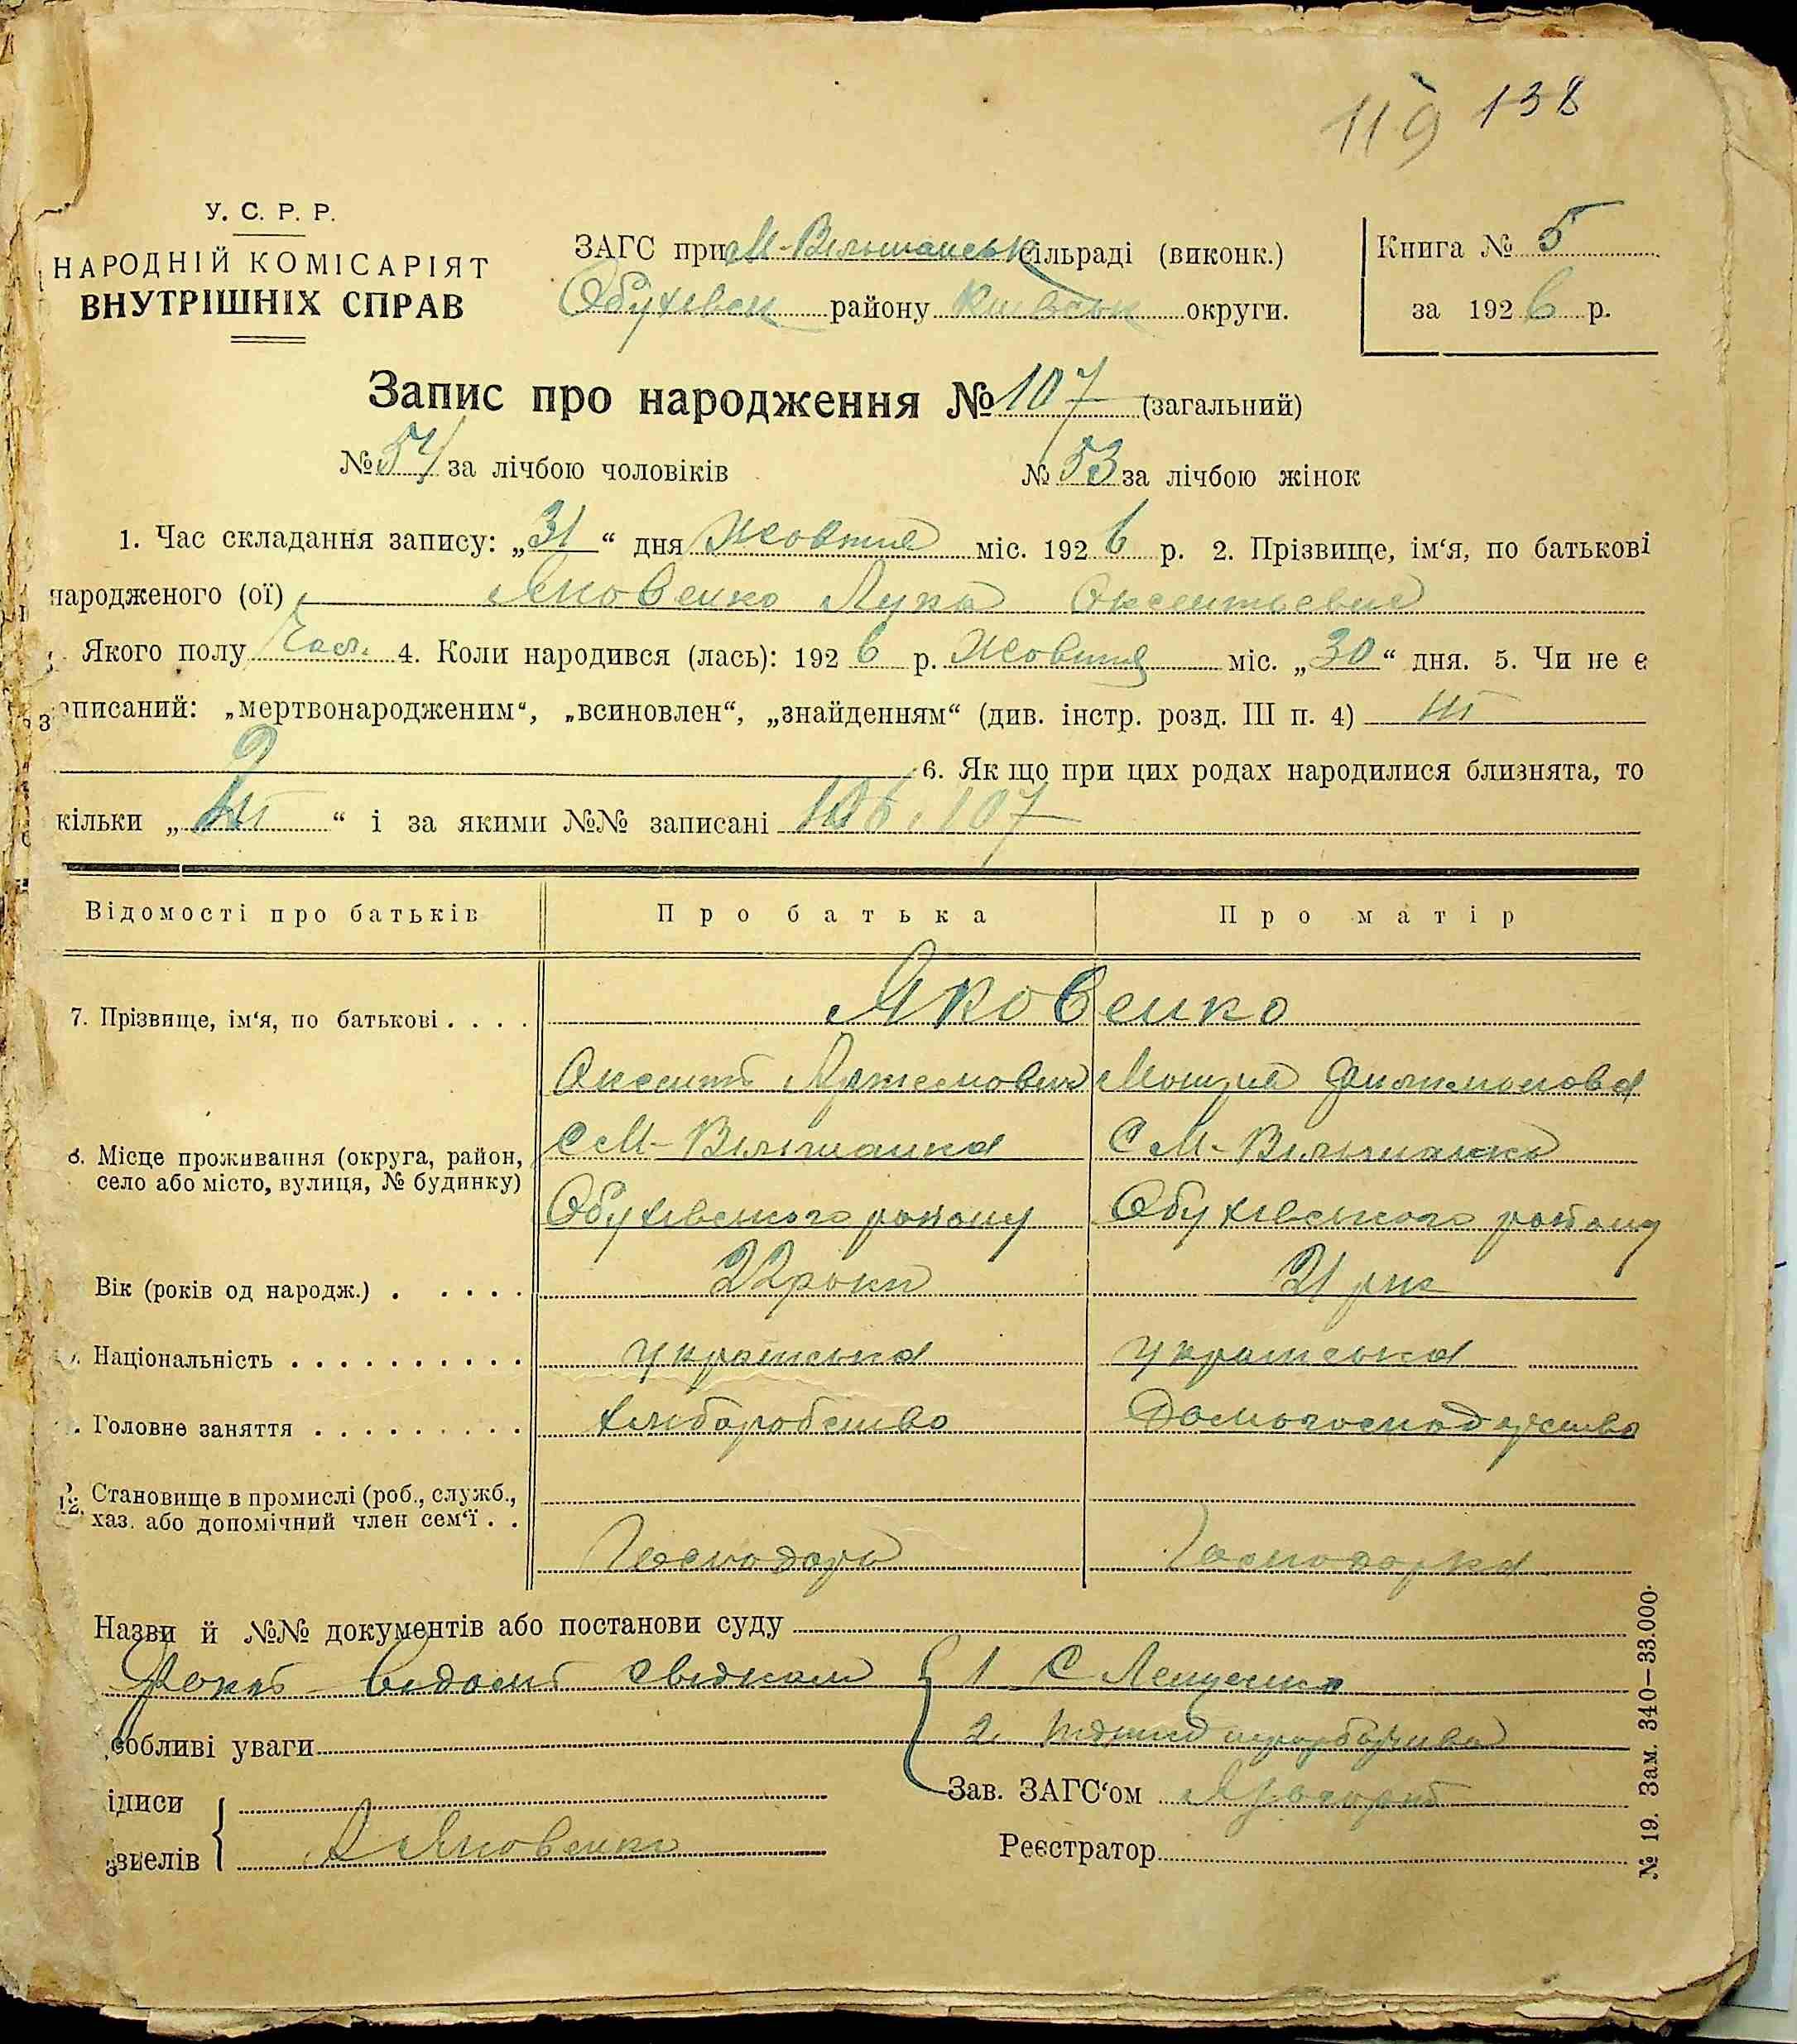 119 138
У. С. Р. Р.
НАРОДНІЙ КОМІСАРІЯТ
ВНУТРІШНІХ СПРАВ
ЗАГС при М-Вільшанськ сільраді (виконк.)
Обухівськ району Київськ округи.
Книга № 5
за 1926 р.
Запис про народження № 107 (загальний)
№ 54 за лічбою чоловіків
№ 53 за лічбою жінок
1. Час складання запису: „31“ дня Жовтня міс. 1926 р. 2. Прізвище, ім‘я, по батькові
народженого (ої) Яковенко Лука Оксентьевич
Якого полу Чол. 4. Коли народився (лась): 1926 р. Жовтня міс. „30“ дня. 5. Чи не є
записаний: „мертвонародженим“, „всиновлен“, „знайденням“ (див. інстр. розд. III п. 4) ні
6. Як що при цих родах народилися близнята, то
2
кільки „ні“ і за якими №№ записані 106, 107
Відомості про батьків
Про батька
Про матір
7. Прізвище, ім‘я, по батькові . . . .
Яковенко
Оксент Артемович
Мотря
8. Місце проживання (округа, район,
село або місто, вулиця, № будинку)
С М-Вільшанка
С М-Вільшанка
Обухівського району
Обухівського району
Вік (років од народж.) . . . . .
22 роки
21 рік
Національність . . . . . . . . . . .
українська
українська
Головне заняття . . . . . . . . .
хліборобство
Домогосподарство
12. Становище в промислі (роб., служб.,
хаз. або допомічний член сем‘ї . .
Господарь
Господарка
Назви й №№ документів або постанови суду
Факт відомі свідкам { 1 С Лещенко
собливі уваги
2.
ідписи
Зав. ЗАГС‘ом
явителів { Яковенко
Реєстратор
№ 19. Зам. 340—33.000.